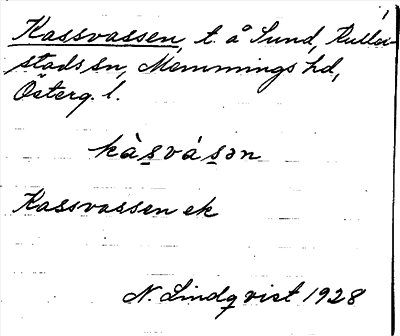 Kassvassen, t. å Sund, Kuller-
stads sn, Memmings hd,
Österg. l.
kàs̲vás̲ən
Kassvassen ek
N. Lindqvist 1928